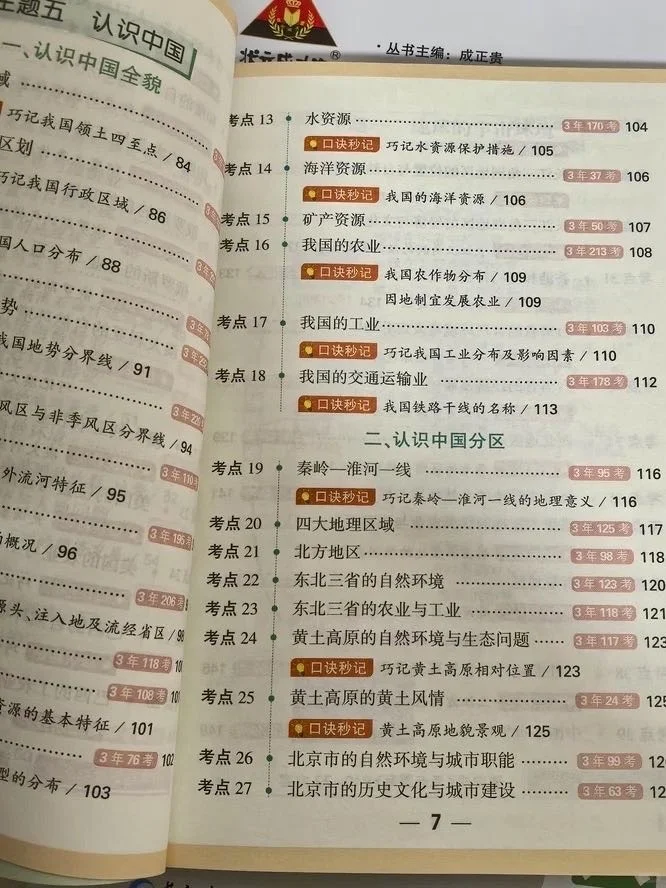 主题五 认识中国
一、认识中国全貌
域
巧记我国领土四至点 / 84
区划
巧记我国行政区域 / 86
国人口分布 / 88
势
我国地势分界线 / 91
风区与非季风区分界线 / 94
3年110考
外流河特征 / 95
3年195考
概况 / 96
3年206考
源头、注入地及流经省区 / 98
3年118考
3年108考 101
资源的基本特征 / 101
3年76考 102
型的分布 / 103
丛书主编:成正贵
考点 13 水资源 3年170考 104
口诀秒记 巧记水资源保护措施 / 105
考点 14 海洋资源 3年37考 106
口诀秒记 我国的海洋资源 / 106
考点 15 矿产资源 3年50考 107
考点 16 我国的农业 3年213考 108
口诀秒记 我国农作物分布 / 109
因地制宜发展农业 / 109
考点 17 我国的工业 3年103考 110
口诀秒记 巧记我国工业分布及影响因素 / 110
考点 18 我国的交通运输业 3年178考 112
口诀秒记 我国铁路干线的名称 / 113
二、认识中国分区
考点 19 秦岭—淮河一线 3年95考 116
口诀秒记 巧记秦岭—淮河一线的地理意义 / 116
考点 20 四大地理区域 3年125考 117
考点 21 北方地区 3年98考 118
考点 22 东北三省的自然环境 3年123考 120
考点 23 东北三省的农业与工业 3年118考 121
考点 24 黄土高原的自然环境与生态问题 3年117考 123
口诀秒记 巧记黄土高原相对位置 / 123
考点 25 黄土高原的黄土风情 3年24考 125
口诀秒记 黄土高原地貌景观 / 125
考点 26 北京市的自然环境与城市职能 3年99考
考点 27 北京市的历史文化与城市建设 3年63考
— 7 —